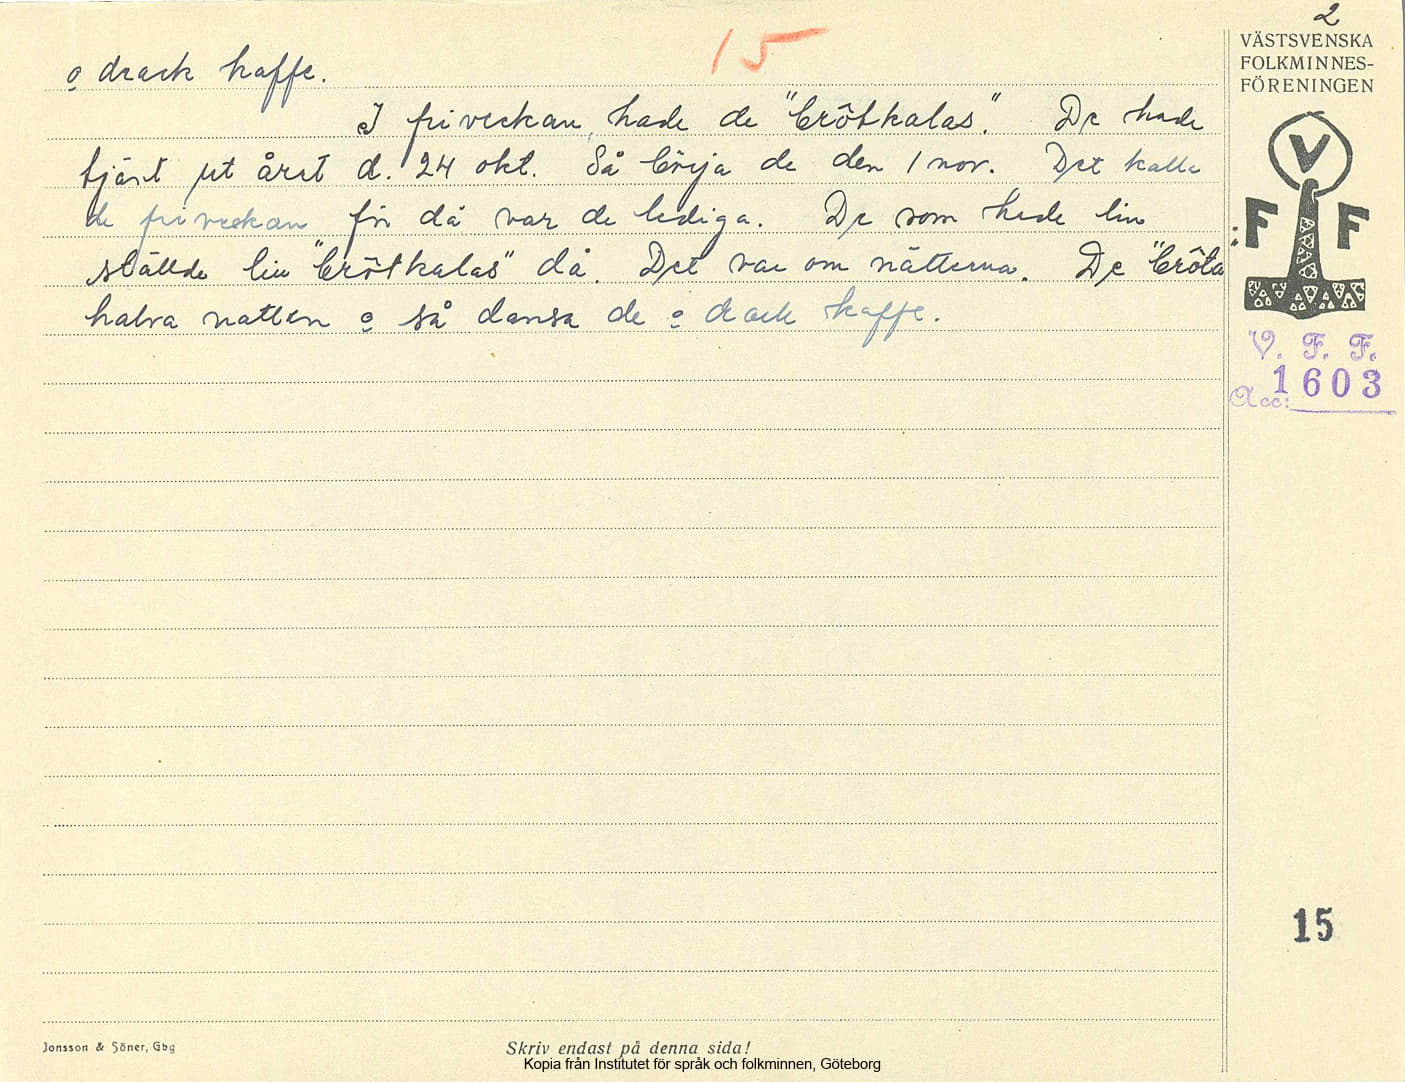 2
VÄSTSVENSKA
FOLKMINNES-
FÖRENINGEN
15
o drack kaffe.
I friveckan, hade de "brötkalas". De hade
tjänt ut året d. 24 okt. Så börja de den 1 nov. Det kalla
de friveckan för då var de lediga. De som hade lin
ställde lin "brötkalas" då. Det var om nätterna. De "bröta
halva natten o så dansa de o drack kaffe.
V
F F
V. F. F.
Acc: 1603
15
Jonsson & Söner, Gbg
Skriv endast på denna sida!
Kopia från Institutet för språk och folkminnen, Göteborg